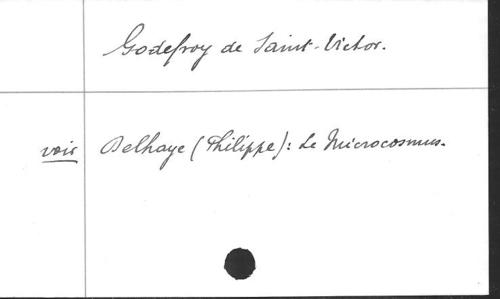 Godefroy de Saint-Victor.
voir Delhaye (Philippe): Le Microcosmus.